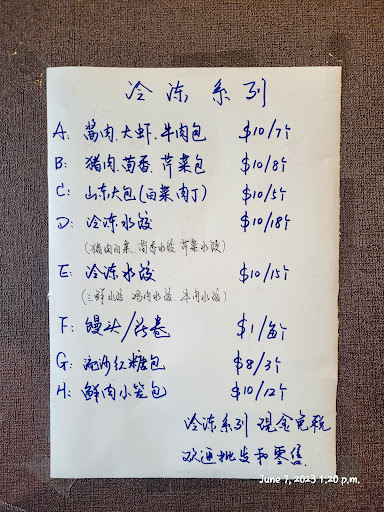 冷冻系列
A: 酱肉.大虾.牛肉包 $10/7个
B: 猪肉.茴香.芹菜包 $10/8个
C: 山东大包(白菜肉丁) $10/5个
D: 冷冻水饺 $10/18个
(猪肉白菜、茴香水饺 芹菜水饺)
E: 冷冻水饺 $10/15个
(三鲜水饺 鸡肉水饺 牛肉水饺)
F: 馒头/花卷 $1/每个
G: 红糖包 $8/3个
H: 鲜肉小笼包 $10/12个
冷冻系列 现金免税
欢迎批发和零售.
June 7, 2023 1:20 p.m.